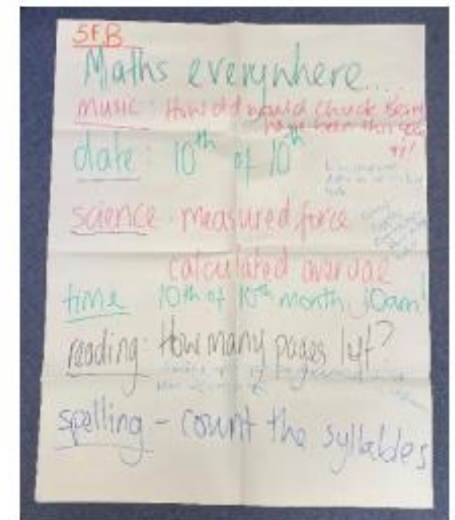 5FB
Maths everywhere...
music: How old would Chuck Berry
have been this
date: 10th of 10th
science: measured force
calculated average
time 10th of 10th month, 10am!
reading: How many pages left?
spelling - count the syllables